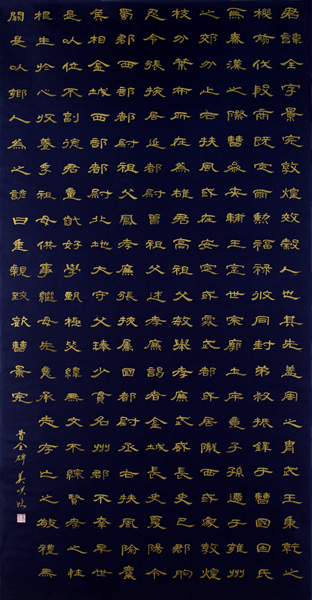 君諱全字景完敦煌效穀人也其先蓋周之胄武王秉乾之
機翦伐殷商既定爾勳福祿攸同封弟叔振鐸于曹國因氏
焉秦漢之際曹參夾輔王室世宗廓土斥竟子孫遷于雍州
之郊分止右扶風或在安定或處武都或居隴西或家敦煌
枝分葉布所在為雄君高祖父敏舉孝廉武威長史巴郡朐
忍令張掖居延都尉曾祖父述孝廉謁者金城長史夏陽令
蜀郡西部都尉祖父鳳孝廉張掖屬國都尉丞右扶風隃麋
侯相金城西部都尉北地大守父琫少貫名州郡不幸早世
是以位不副德君童齔好學甄極毖緯無文不綜賢孝之性
根生於心收養季祖母供事繼母先意承志存亡之敬禮無
闕是以鄉人為之諺曰重親致歡曹景完
曹全碑